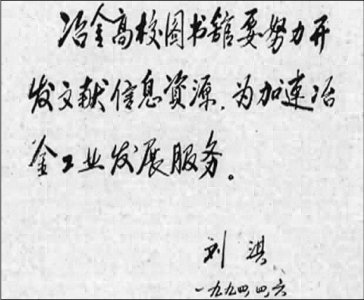 冶金高校图书馆要努力开
发文献信息资源,为加速冶
金工业发展服务。
刘淇
一九九四.四.六